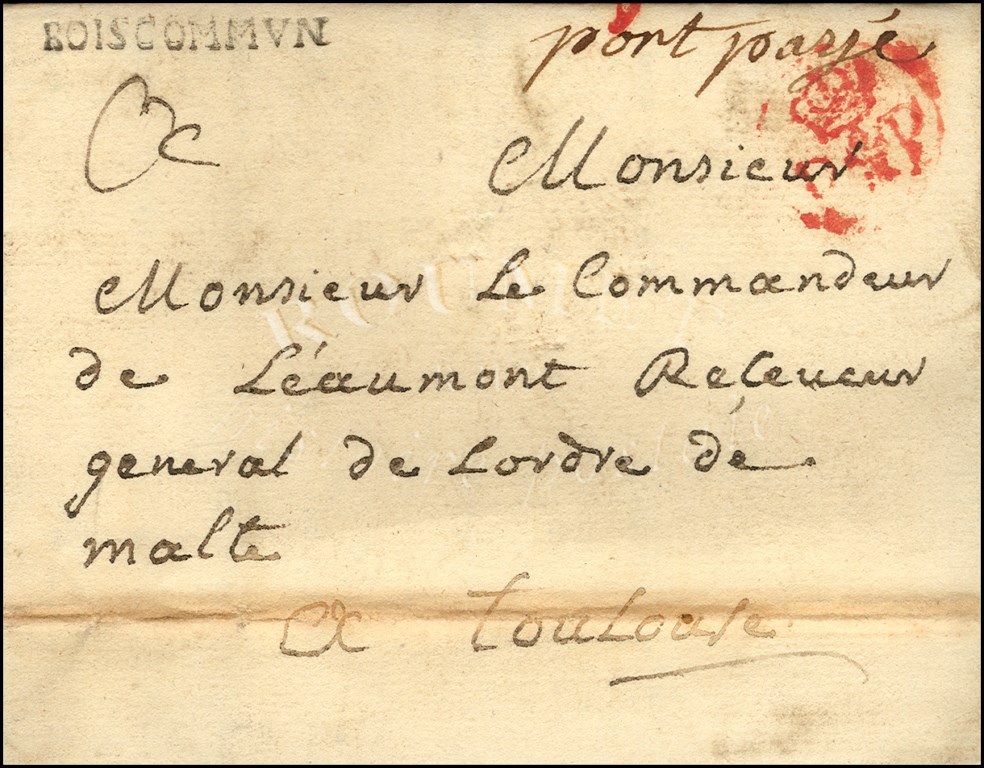 BOISCOMMVN
port payé
A Monsieur
Monsieur Le Commandeur
de Léaumont Reseveur
general de Lordre de
malte
A Toulouse
ROUMET